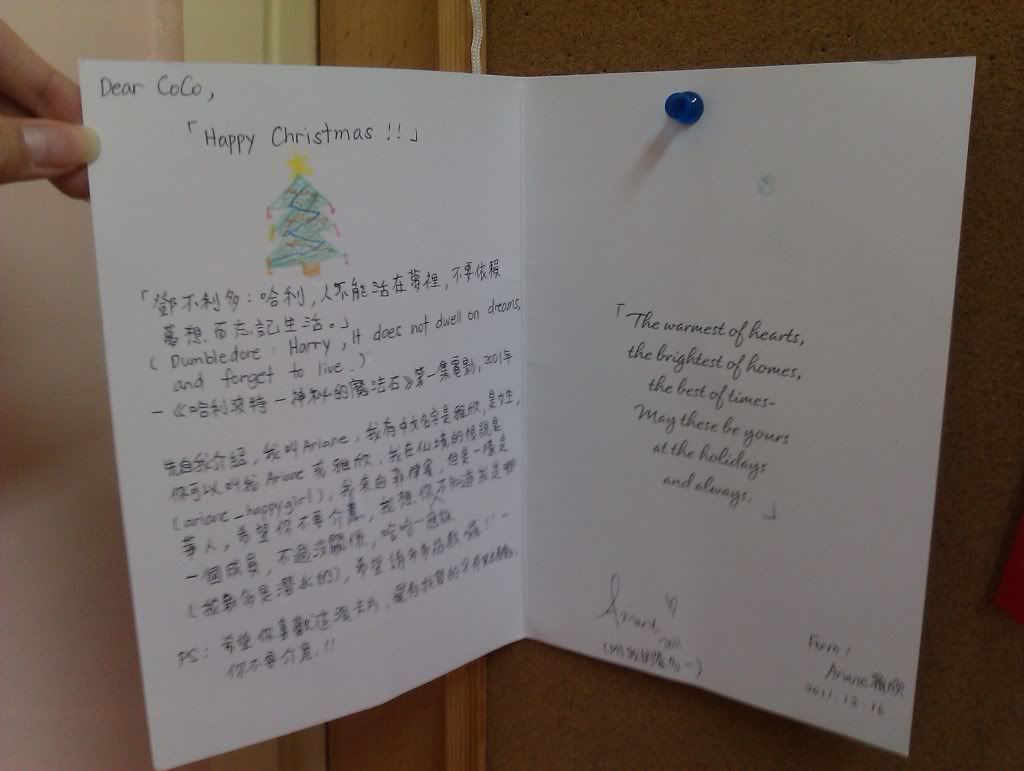 Dear CoCo,
「Happy Christmas !!」
「鄧不利多：哈利，人不能活在夢裡，不要依賴
夢想而忘記生活。」
(Dumbledore : Harry, It does not dwell on dreams,
and forget to live.)
－《哈利波特－神秘的魔法石》第一集電影，2001年
先自我介紹，我叫Ariane，我有中文名字是雅欣，是女生，
你可以叫我 Ariane 或雅欣，我在仙境的帳號是
(ariane_happygirl)，我來自菲律賓，但是一樣是
華人，希望你不要介意，我想你不知道我是哪
一個成員，不過沒關係，哈哈~應該
(我都是潛水的)，希望請多多指教喔!!~
PS：希望你喜歡這張卡片，還有我寫的字有點醜，
你不要介意.!!
「The warmest of hearts,
the brightest of homes,
the best of times-
May these be yours
at the holidays
and always.」
2011
Form :
Ariane 雅欣
2011.12.16